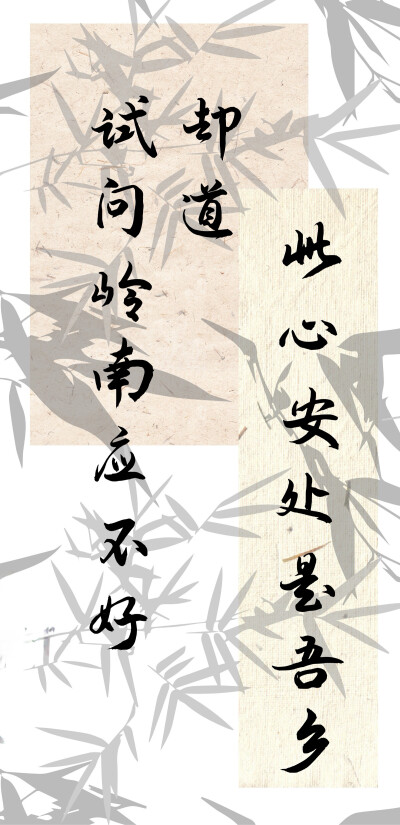 试问岭南应不好
却道
此心安处是吾乡